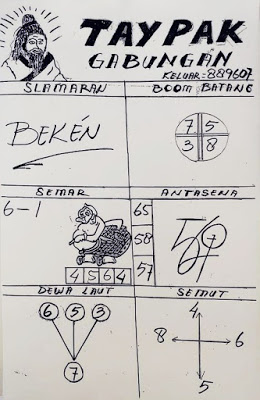 TAYPAK
GABUNGAN
KELUAR = 889607
SLAMARAN
BOOM BATANG
BEKÉN
7 5
3 8
SEMAR
ANTASENA
6-1
65
58
57
4 5 6 4
DEWA LAUT
SEMUT
6 5 3
7
4
8 6
5